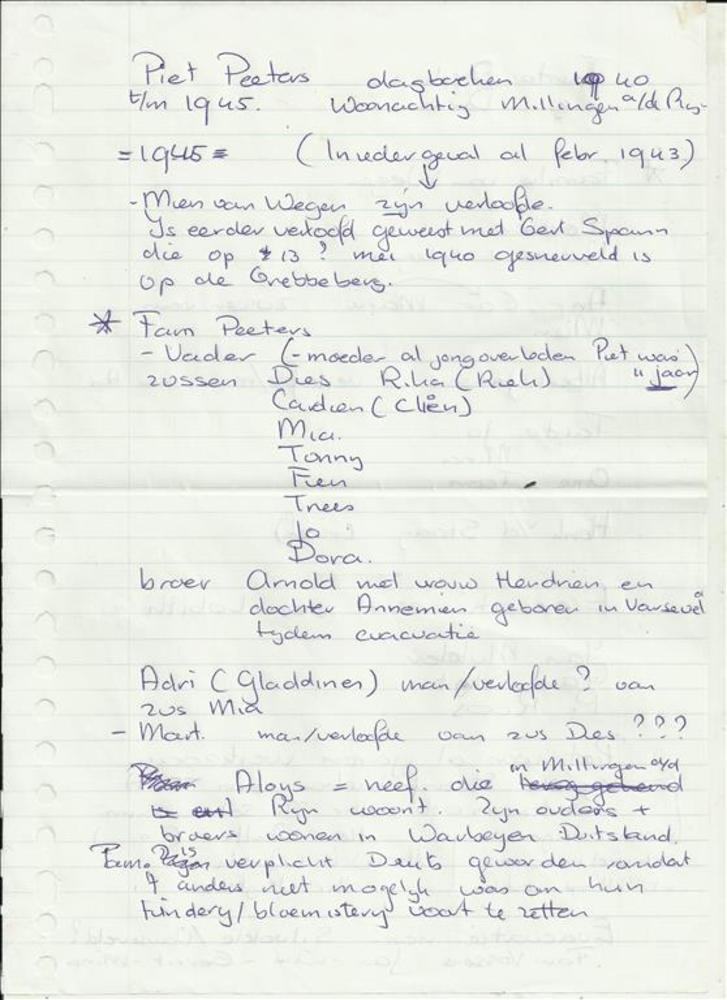 Piet Peeters dagboeken 1940
t/m 1945. Woonachtig Millingen a/de Ryn
=1945= (In ieder geval al febr 1943)
↓
- Mien van Wegen zijn verloofde.
Is eerder verloofd geweest met Gert Spann
die op 13? mei 1940 gesneuveld is
op de Grebbeberg.
* Fam Peeters
- Vader (- moeder al jong overleden Piet was
zussen Dies Rika (Riek) 11 jaar)
Cardien (Cliën)
Mia.
Tonny
Fien
Trees
Jo
Dora.
broer Arnold met vrouw Hendrien en
dochter Annemien geboren in Varseveld
tydens evacuatie
Adri (Gladdines) man/verloofde? van
zus Mia
- Mart. man/verloofde van zus Dies ???
Aloys = neef. die in Millingen a/d
Ryn woont. Zyn ouders +
broers wonen in Warbeyen Duitsland.
Fam. is verplicht Deuts geworden omdat
't anders niet mogelyk was om hun
tuindery/bloemistery voort te zetten